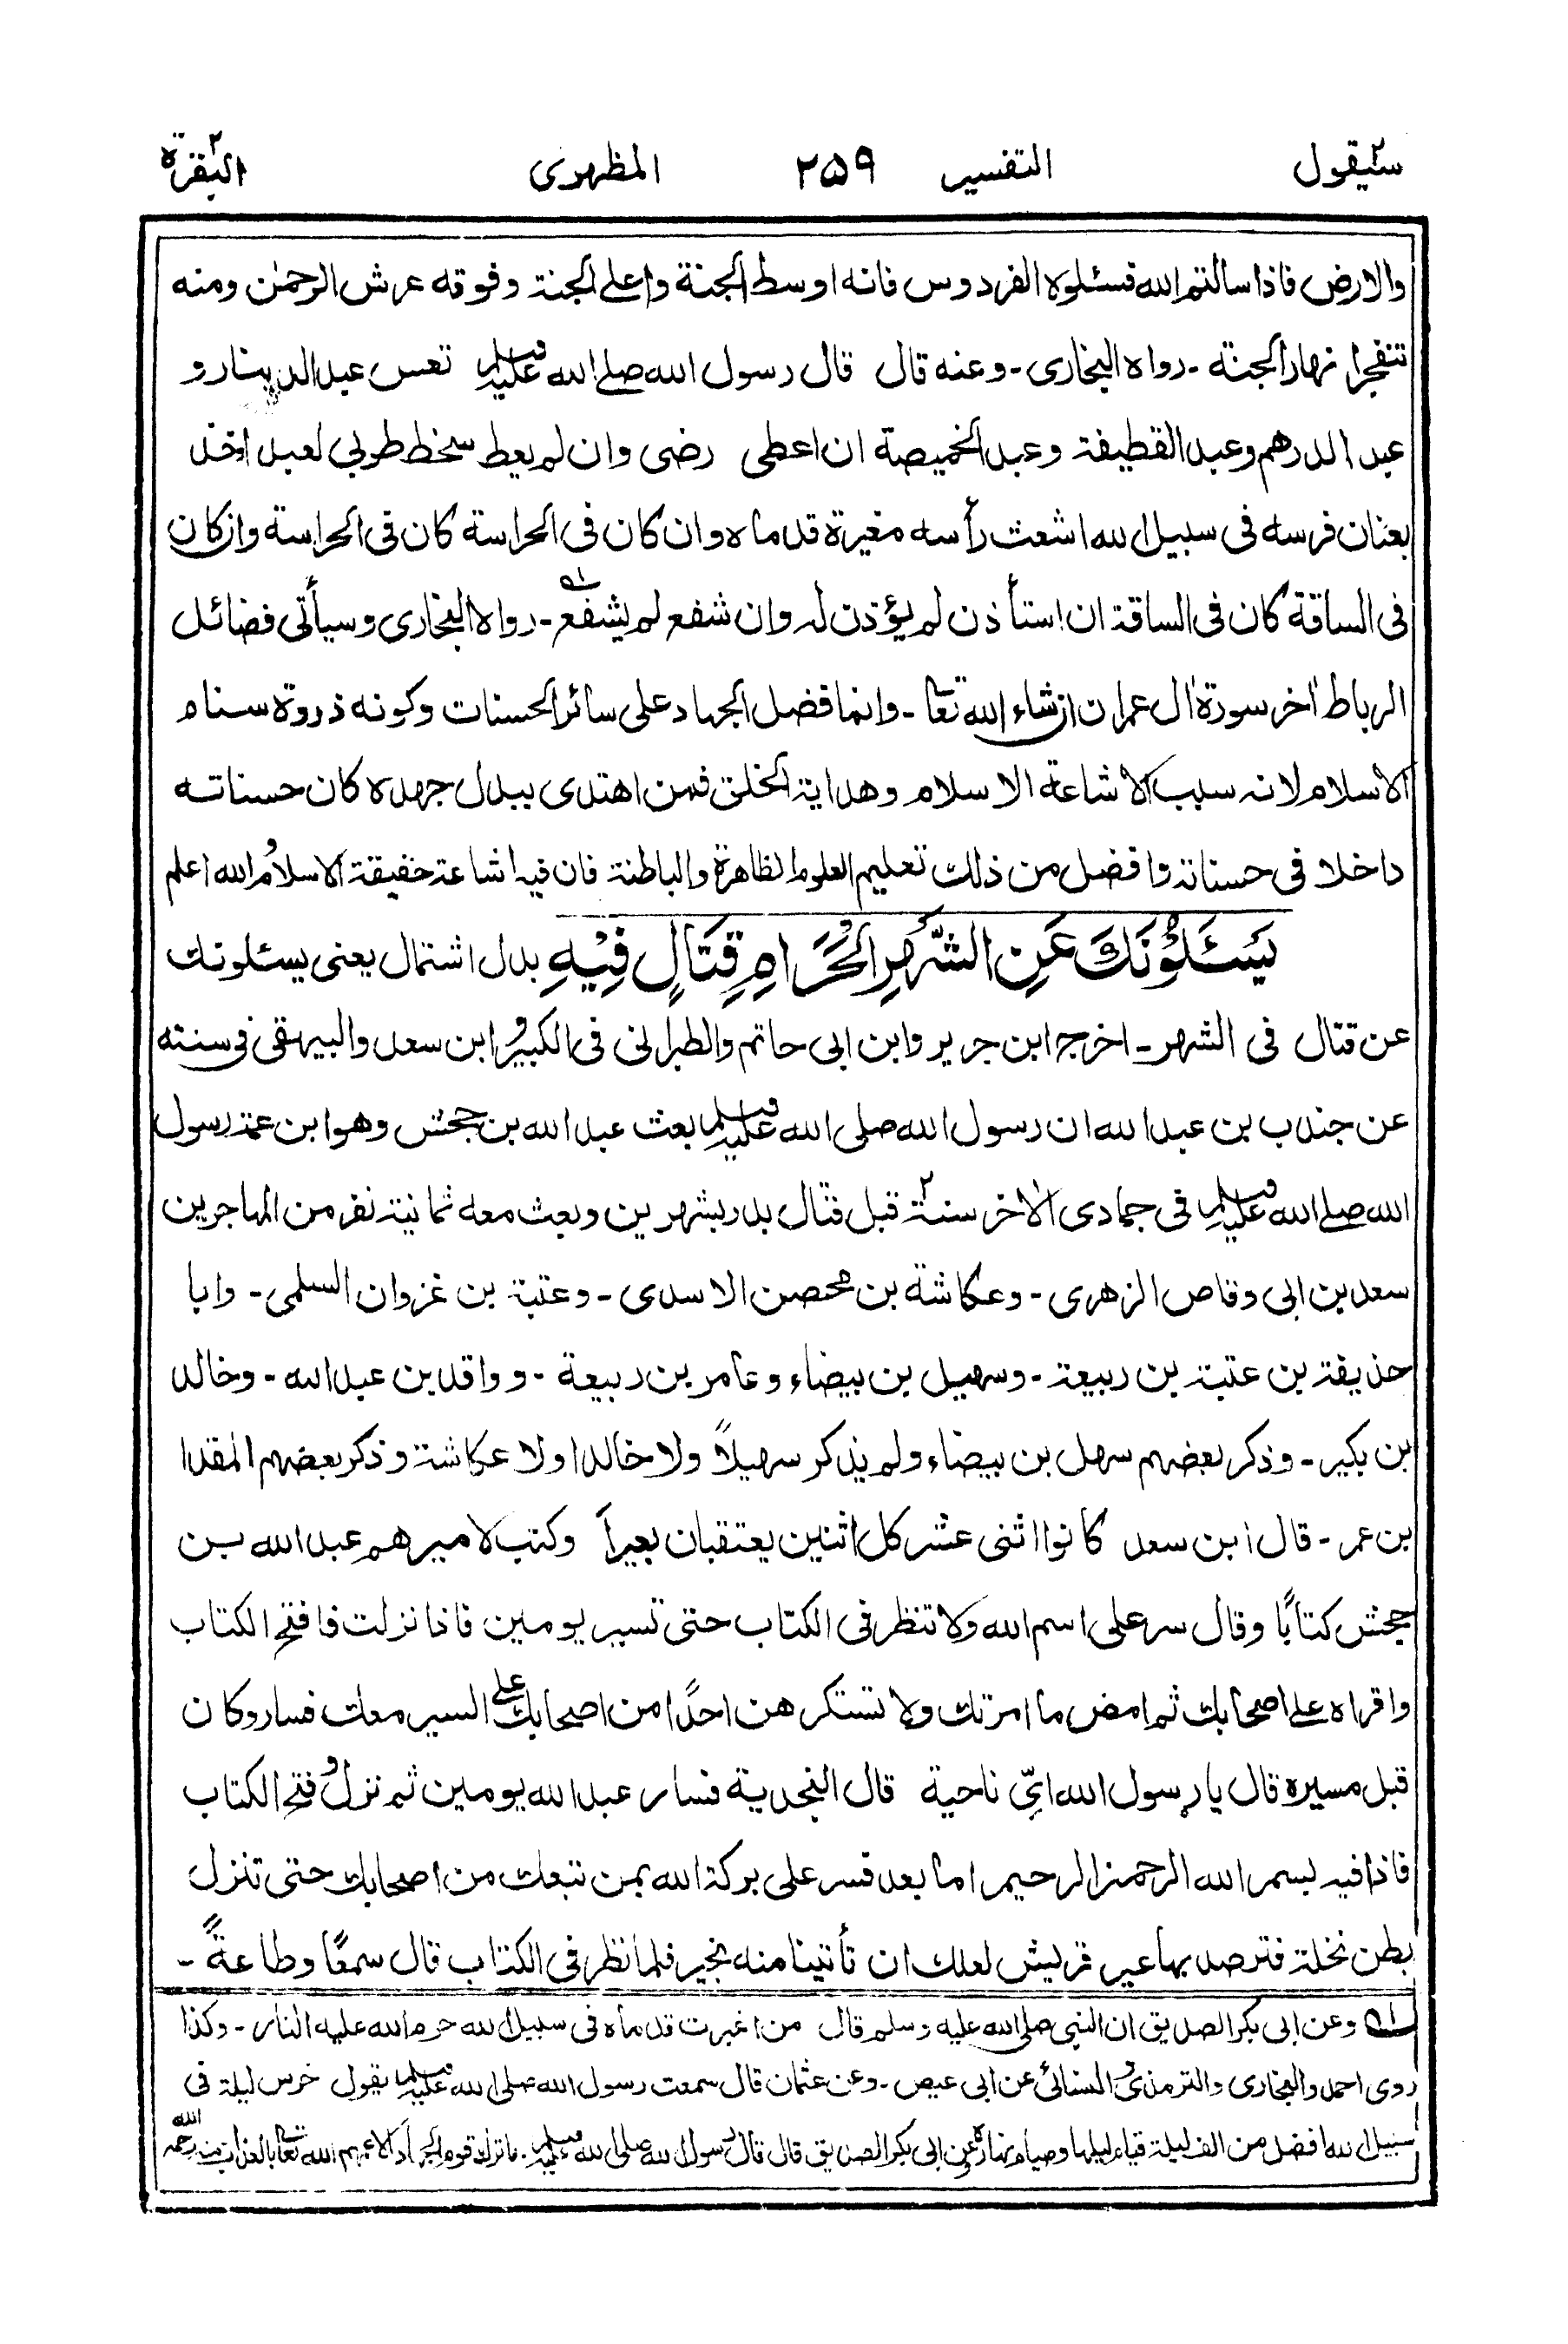 سيقول ٢ التفسير ٢٥٩ المظهرى البقرة ٢
والارض فاذا سالتم الله فسئلوه الفردوس فانه اوسط الجنة واعلى الجنة وفوقه عرش الرحمٰن ومنه
تنفجر انهار الجنة ـ رواه البخارى ـ وعنه قال قال رسول الله صلى الله عليه وسلم تعس عبد الدينار و
عبد الدرهم وعبد القطيفة وعبد الخميصة ان اعطى رضى وان لم يعط سخط طوبى لعبد اٰخذ
بعنان فرسه فى سبيل الله اشعث رأسه مغبرة قدماه وان كان فى الحراسة كان فى الحراسة وان كان
فى الساقة كان فى الساقة ان استأذن لم يؤذن له وان شفع لم يشفع ١ـه ـ رواه البخارى وسيأتى فضائل
الرباط اٰخر سورة اٰل عمران ان شاء الله تعا ـ وانما فضل الجهاد على سائر الحسنات وكونه ذروة سنام
الاسلام لانه سبب لاشاعة الاسلام وهداية الخلق فمن اهتدى ببدل جهده كان حسناته
داخلا فى حسناته وافضل من ذلك تعليم العلوم الظاهرة والباطنة فان فيه اشاعة حقيقة الاسلام والله اعلم
يَسْـَٔلُوْنَكَ عَنِ الشَّهْرِ الْحَرَامِ قِتَالٍ فِيْهِ بدل اشتمال يعنى يسئلونك
عن قتال فى الشهر ـ اخرج ابن جرير وابن ابى حاتم والطبرانى فى الكبير وابن سعد والبيهقى فى سننه
عن جندب بن عبد الله ان رسول الله صلى الله عليه وسلم بعث عبد الله بن جحش وهو ابن عمة رسول
الله صلى الله عليه وسلم فى جمادى الاٰخر سنة ٢ قبل قتال بدر بشهرين وبعث معه ثمانية نفر من المهاجرين
سعد بن ابى وقاص الزهرى ـ وعكاشة بن محصن الاسدى ـ وعتبة بن غزوان السلمى ـ وابا
حذيفة بن عتبة بن ربيعة ـ وسهيل بن بيضاء وعامر بن ربيعة ـ وواقد بن عبد الله ـ وخالد
بن بكير ـ وذكر بعضهم سهل بن بيضاء ولم يذكر سهيلاً ولا خالدا ولا عكاشة وذكر بعضهم المقدا
بن عمر ـ قال ابن سعد كانوا اثنى عشر كل اثنين يعتقبان بعيراً وكتب لاميرهم عبد الله بن
جحش كتابًا وقال سر على اسم الله ولا تنظر فى الكتاب حتى تسير يومين فاذا نزلت فافتح الكتاب
واقراه على اصحابك ثم امض ما امرتك ولا تستكرهن احدًا من اصحابك على السير معك فسار وكان
قبل مسيره قال يا رسول الله اىّ ناحية قال النجدية فسار عبد الله يومين ثم نزل وفتح الكتاب
فاذا فيه بسم الله الرحمن الرحيم اما بعد فسر على بركة الله بمن تبعك من اصحابك حتى تنزل
بطن نخلة فترصد بها عير قريش لعلك ان تأتينا منه بخير فلما نظر فى الكتاب قال سمعًا وطاعةً ـ
١ـه وعن ابى بكر الصديق ان النبى صلى الله عليه وسلم قال من اغبرت قدماه فى سبيل الله حرم الله عليه النار ـ وكذا
روى احمد والبخارى والترمذى والنسائى عن ابى عبس ـ وعن عثمان قال سمعت رسول الله صلى الله عليه وسلم يقول حرس ليلة فى
سبيل الله افضل من الف ليلة قيام ليلها وصيام نهارها وعن ابى بكر الصديق قال قال رسول الله صلى الله عليه وسلم ـ ما ترك قوم الجهاد الا عمهم الله تعا بالعذاب منه رحمه الله